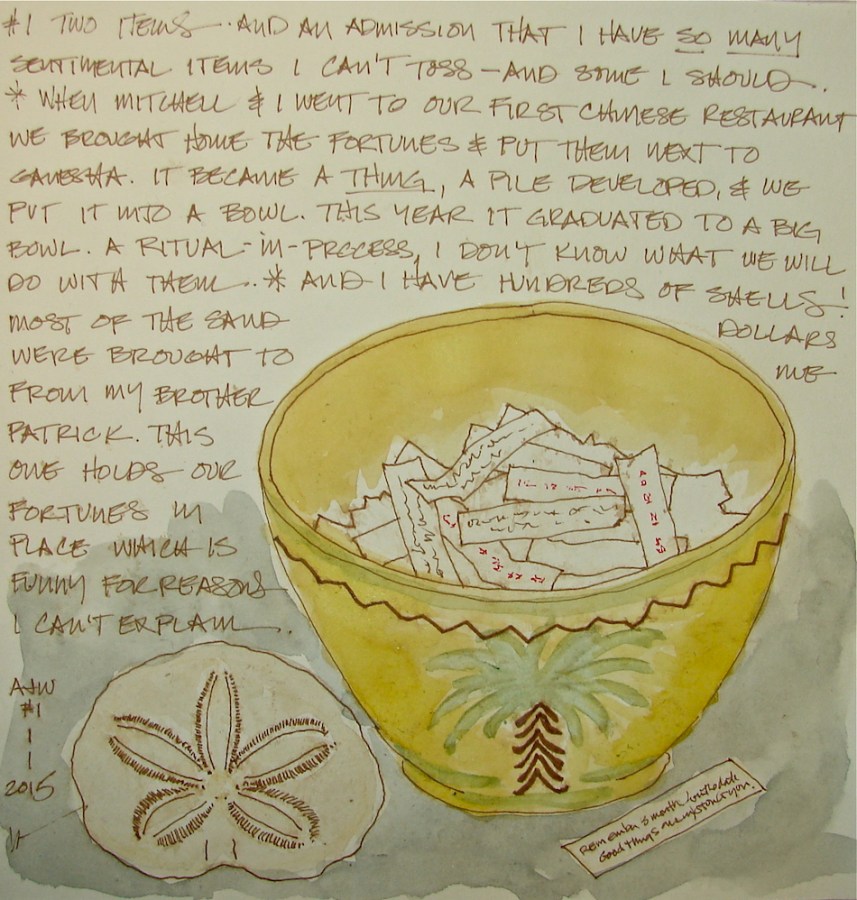 #1 TWO ITEMS.. AND AN ADMISSION THAT I HAVE SO MANY
SENTIMENTAL ITEMS I CAN'T TOSS – AND SOME I SHOULD.
* WHEN MITCHELL & I WENT TO OUR FIRST CHINESE RESTAURANT
WE BROUGHT HOME THE FORTUNES & PUT THEM NEXT TO
GANESHA. IT BECAME A THING, A PILE DEVELOPED, & WE
PUT IT INTO A BOWL. THIS YEAR IT GRADUATED TO A BIG
BOWL. A RITUAL-IN-PROCESS, I DON'T KNOW WHAT WE WILL
DO WITH THEM.. * AND I HAVE HUNDREDS OF SHELLS!
MOST OF THE SAND DOLLARS
WERE BROUGHT TO ME
FROM MY BROTHER
PATRICK. THIS
ONE HOLDS OUR
FORTUNES IN
PLACE WHICH IS
FUNNY FOR REASONS
I CAN'T EXPLAIN..
#1
1
1
2015
Remember 3 months
Good things